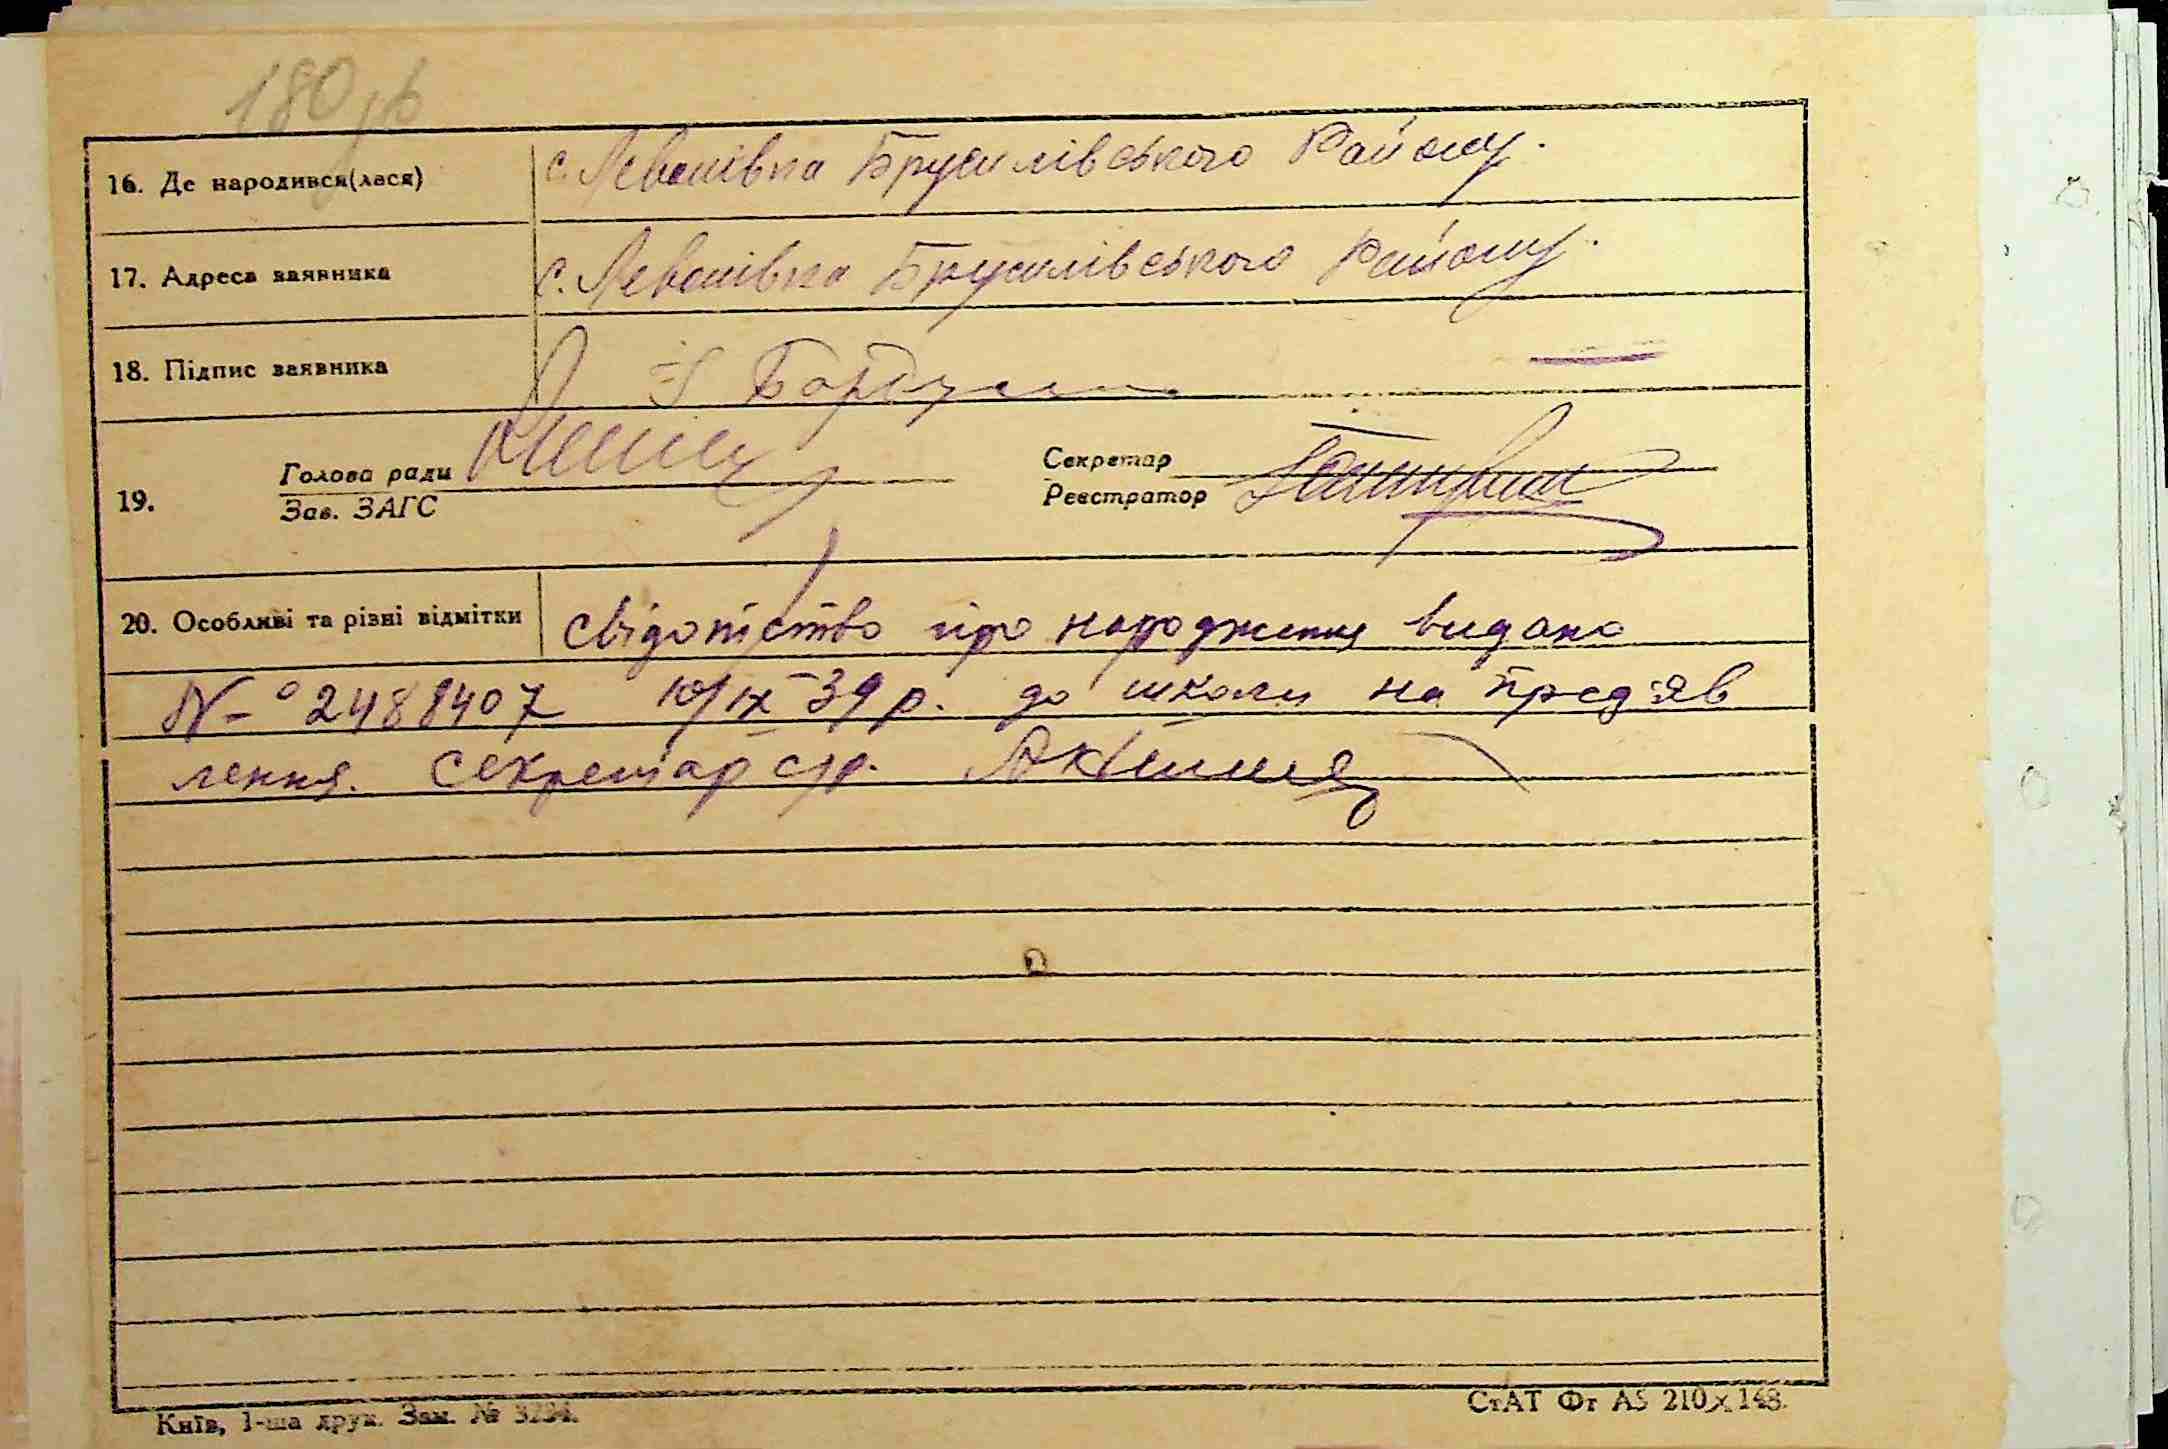 180 зв
16. Де народився(лася) с. Левонівка Брусилівського Району.
17. Адреса заявника с. Левонівка Брусилівського Району.
18. Підпис заявника
19. Голова ради Секретар
Зав. ЗАГС Реєстратор
20. Особливі та різні відмітки свідотство про народження видано
№ 2488407 10/IX-39 р. до школи на пред'яв
лення. Секретар с/р.
Київ, 1-ша друк. Зам. № 3294.
СтАТ Фг А5 210×148.